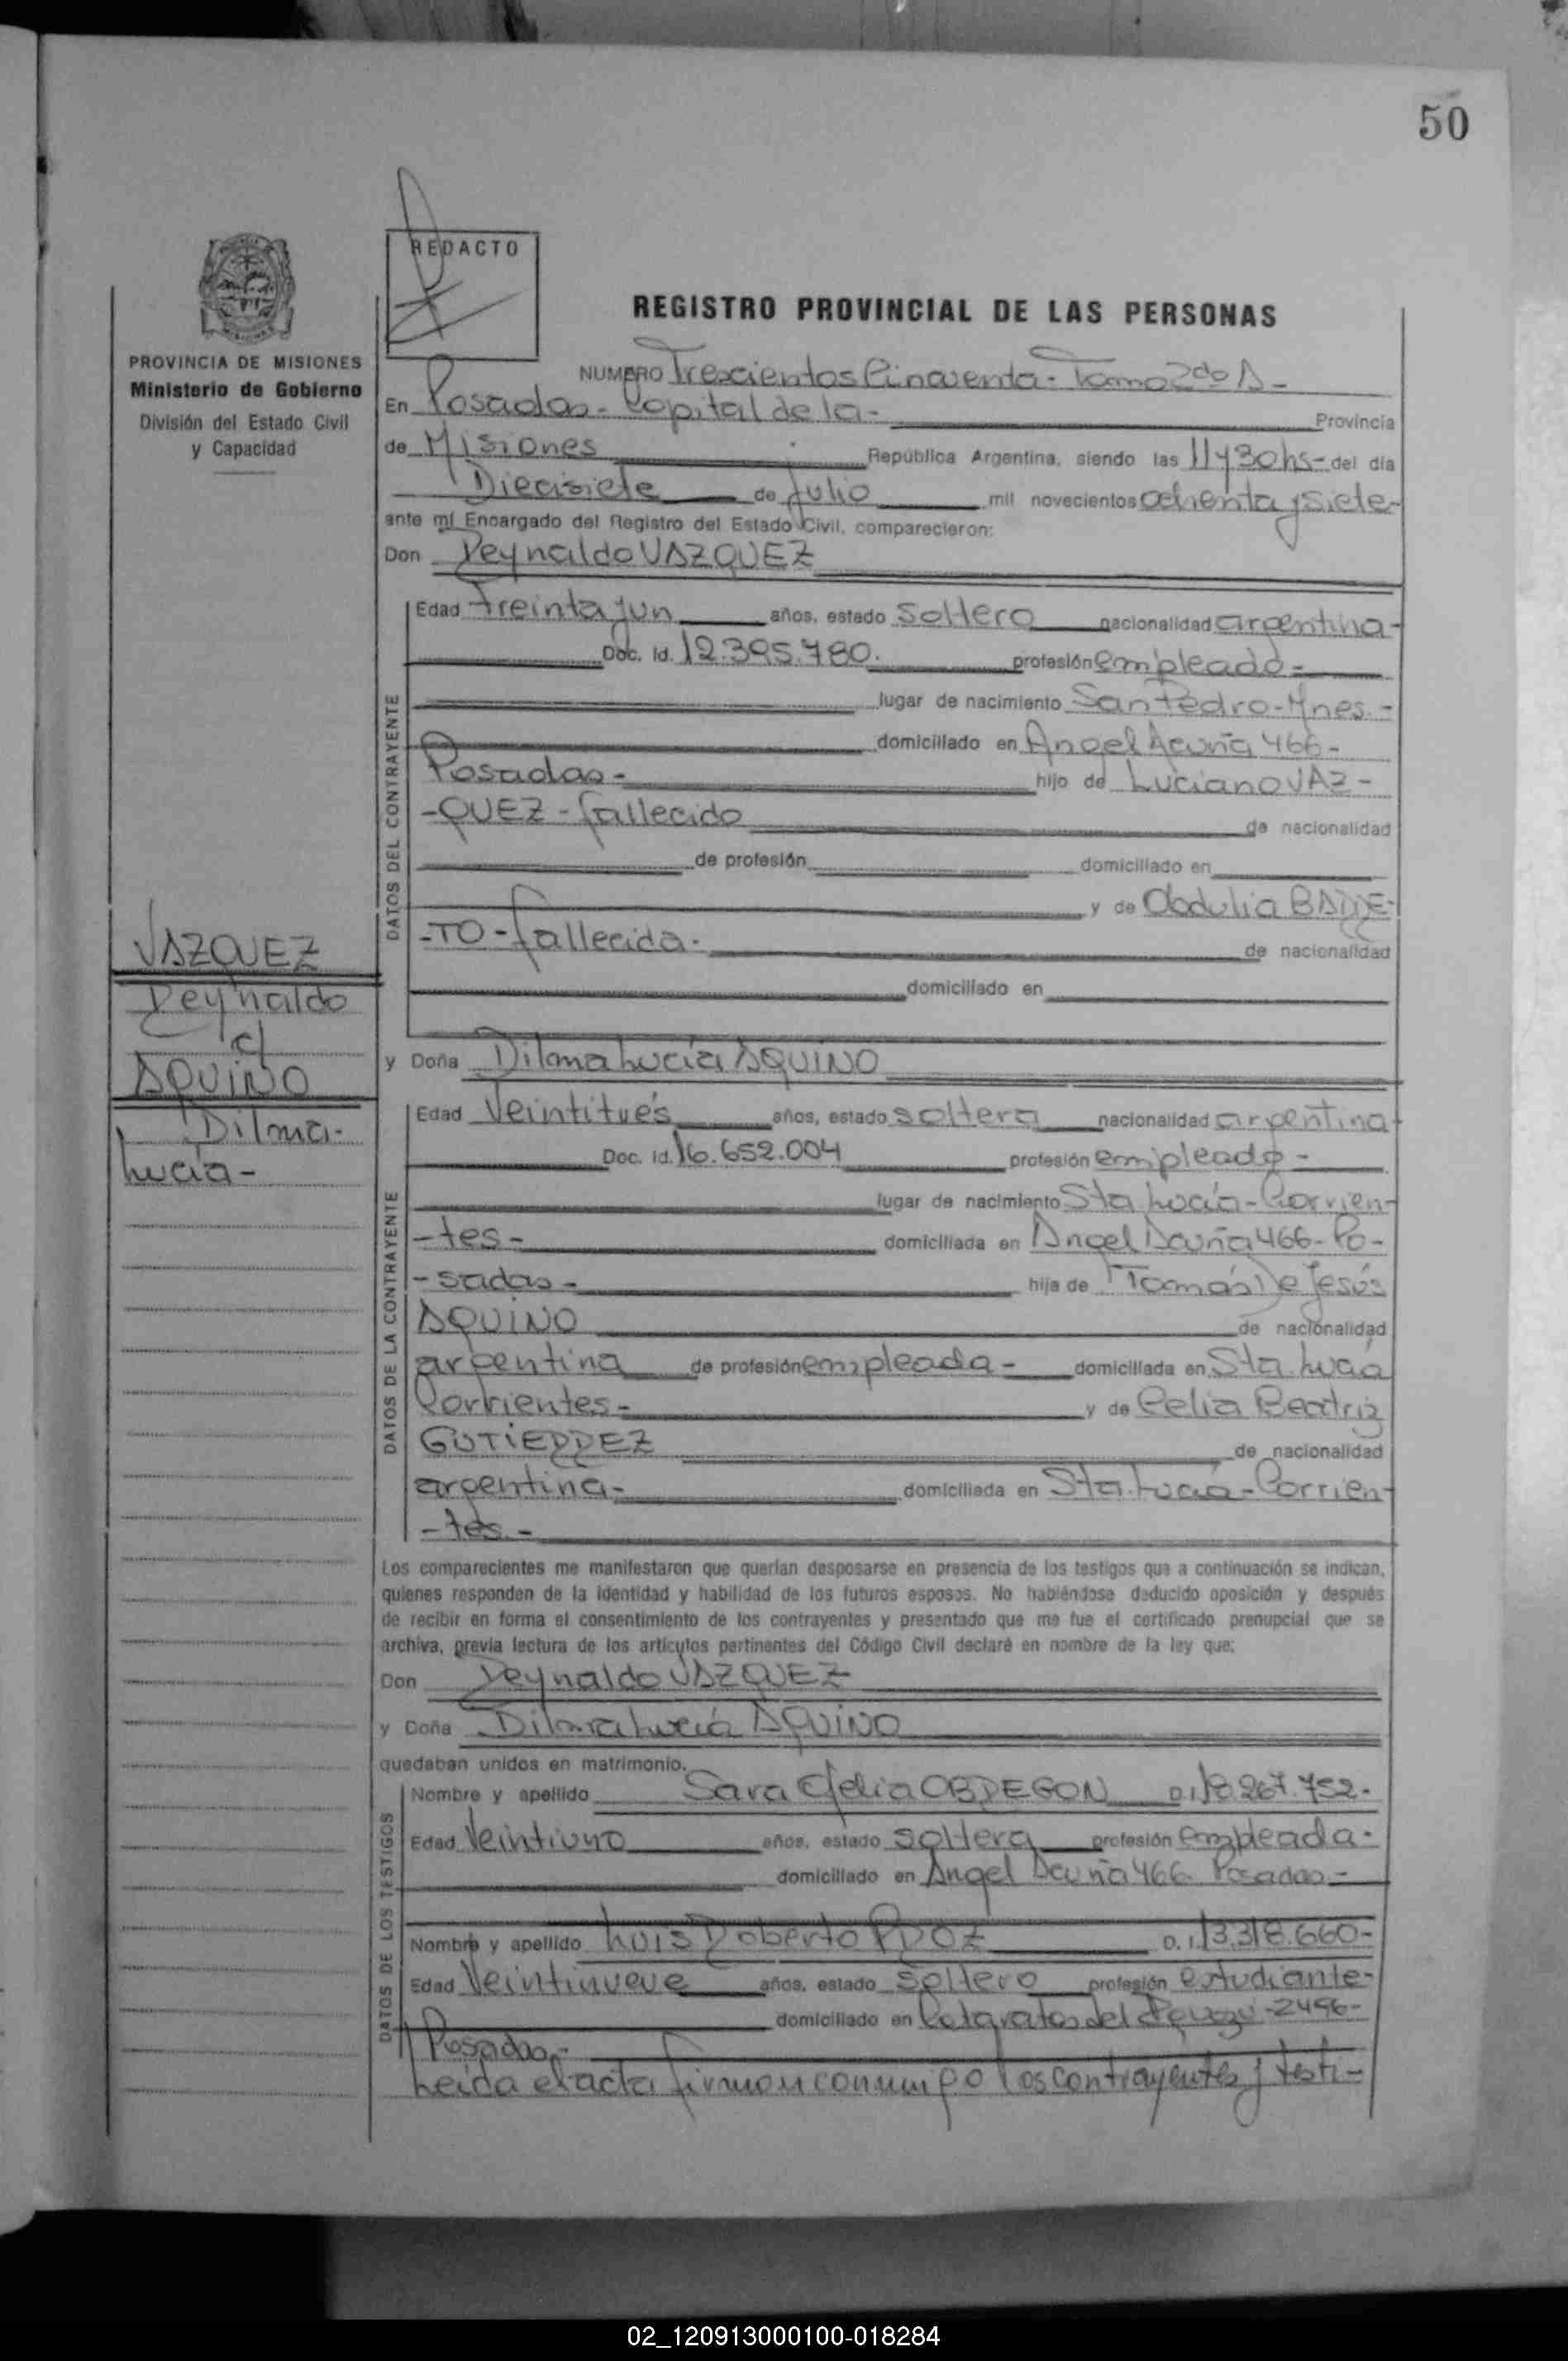 50
REDACTO
PROVINCIA DE MISIONES
Ministerio de Gobierno
División del Estado Civil
y Capacidad
REGISTRO PROVINCIAL DE LAS PERSONAS
NUMERO Trescientos Cincuenta - Tomo 2do A -
En Posadas - Capital de la - Provincia
de Misiones República Argentina, siendo las 11 y 30 hs - del día
Diecisiete de julio mil novecientos ochenta y siete -
ante mí Encargado del Registro del Estado Civil, comparecieron:
Don Reynaldo VAZQUEZ
DATOS DEL CONTRAYENTE
Edad treinta y un años, estado soltero nacionalidad argentina -
Doc. Id. 12.395.780. profesión empleado -
lugar de nacimiento San Pedro - Mnes. -
domiciliado en Angel Acuña 466 -
Posadas - hijo de Luciano VAZ -
- QUEZ - fallecido de nacionalidad
de profesión domiciliado en
y de Obdulia BARRE -
- TO - fallecida - de nacionalidad
domiciliado en
VAZQUEZ
Reynaldo
c/
AQUINO
Dilma -
Lucía -
y Doña Dilma Lucía AQUINO
DATOS DE LA CONTRAYENTE
Edad Veintitrés años, estado soltera nacionalidad argentina
Doc. Id. 16.652.004 profesión empleada -
lugar de nacimiento Sta Lucía - Corrien -
- tes - domiciliada en Angel Acuña 466 - Po -
- sadas - hija de Tomás De Jesús
AQUINO de nacionalidad
argentina de profesión empleada - domiciliada en Sta. Lucía
Corrientes - y de Celia Beatriz
GUTIERREZ de nacionalidad
argentina - domiciliada en Sta. Lucía - Corrien -
- tes. -
Los comparecientes me manifestaron que querían desposarse en presencia de los testigos que a continuación se indican,
quienes responden de la identidad y habilidad de los futuros esposos. No habiéndose deducido oposición y después
de recibir en forma el consentimiento de los contrayentes y presentado que me fue el certificado prenupcial que se
archiva, previa lectura de los artículos pertinentes del Código Civil declaré en nombre de la ley que:
Don Reynaldo VAZQUEZ
y Doña Dilma Lucía AQUINO
quedaban unidos en matrimonio.
DATOS DE LOS TESTIGOS
Nombre y apellido Sara Clelia OBREGON D.I. 18.267.752 -
Edad Veintiuno años, estado soltera profesión empleada -
domiciliado en Angel Acuña 466 - Posadas -
Nombre y apellido Luis Roberto D.I. 13.318.660 -
Edad Veintinueve años, estado soltero profesión estudiante -
domiciliado en Cataratas del - 2496 -
Posadas -
Leida el acta firman conmigo los contrayentes y testi -
02_120913000100-018284